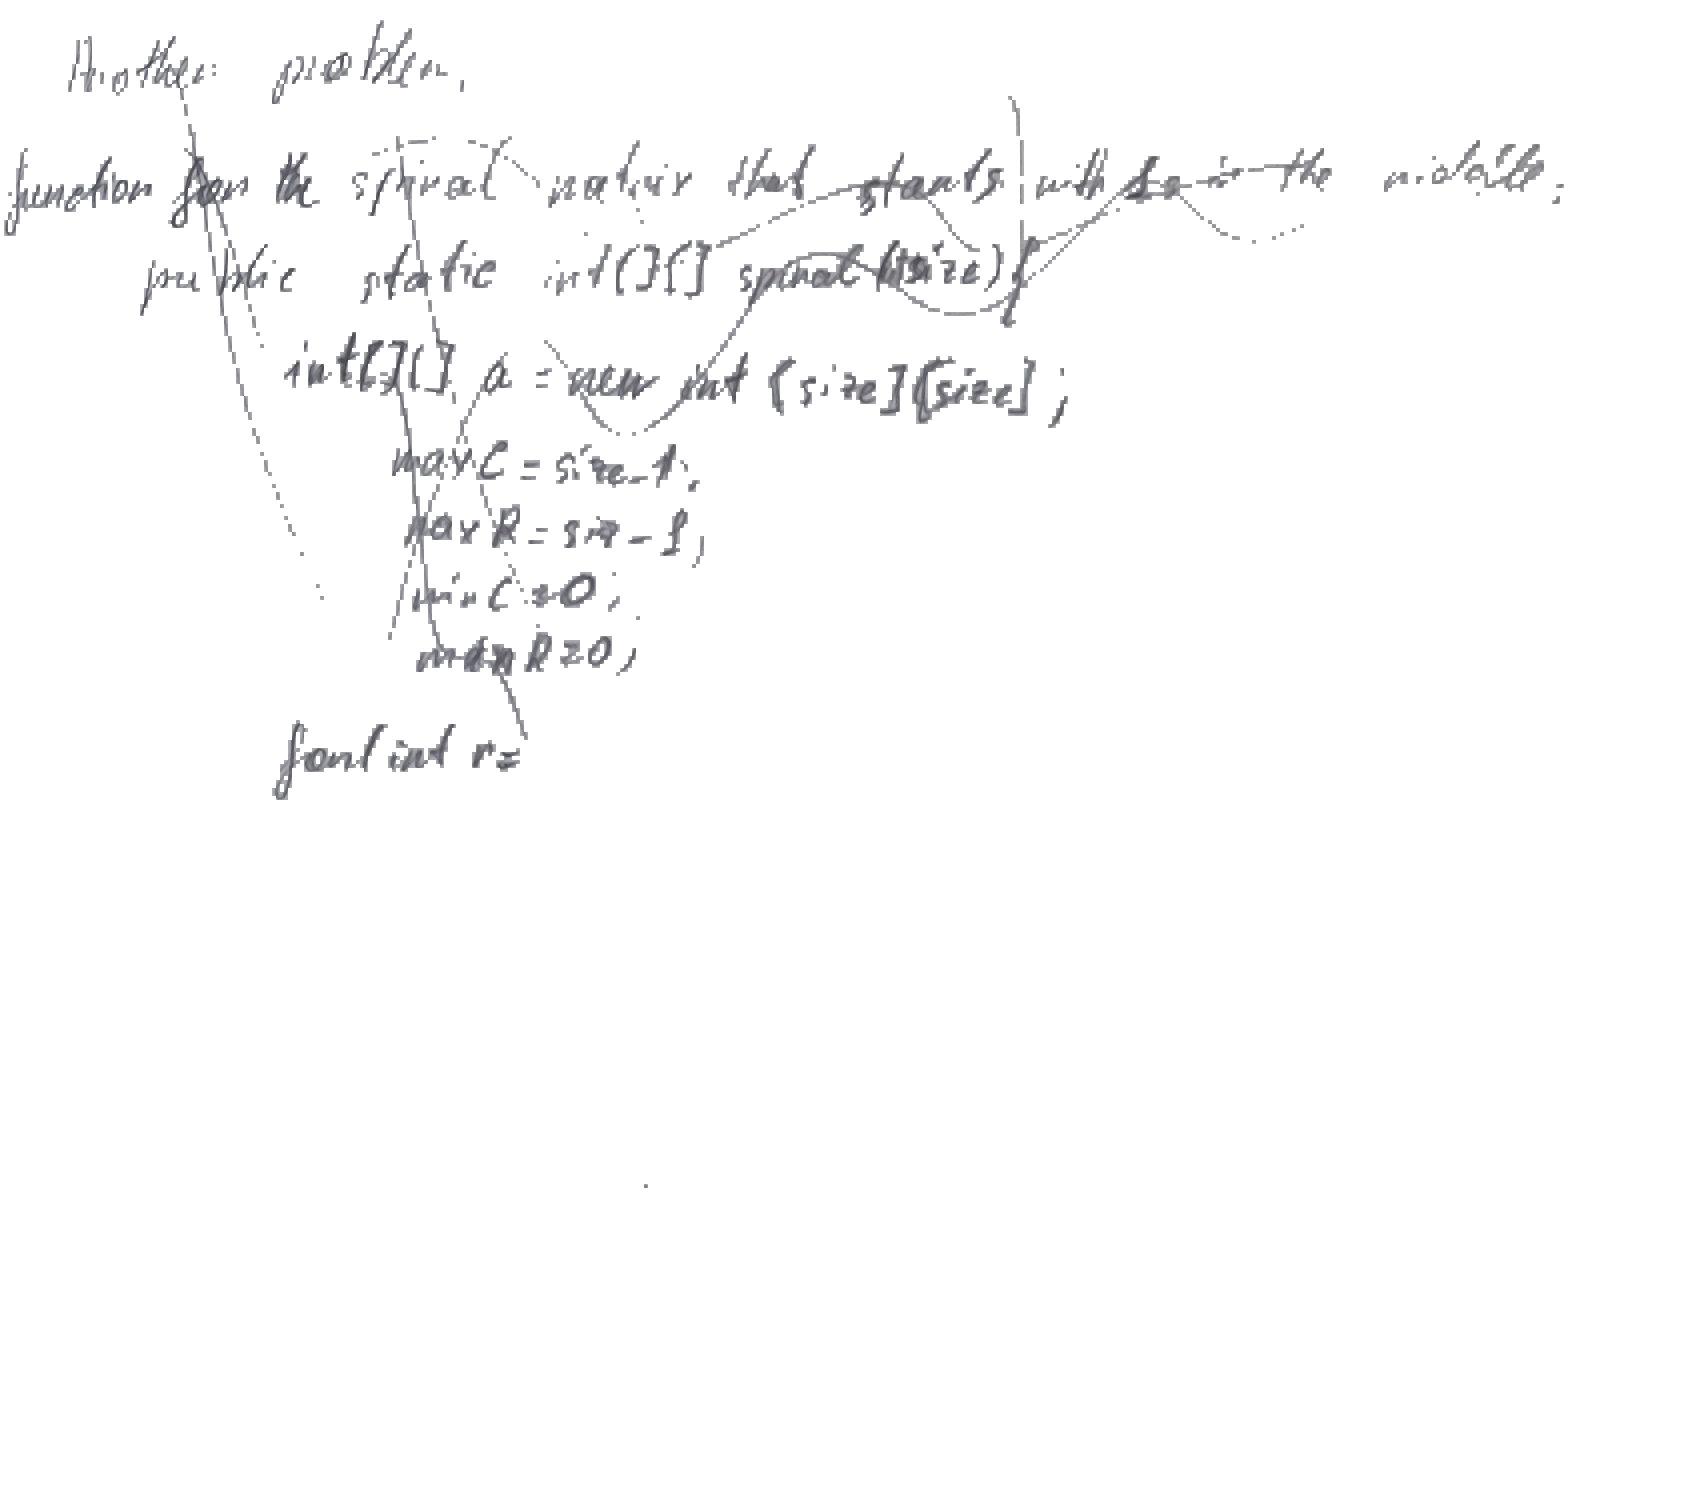 Another problem.
function for the spiral matrix that starts with in the middle.
public static int[][] spiral (size) {
int[][] a = new int [size][size];
maxC = size-1;
maxR = size-1;
minC = 0;
R = 0;
for( int r =